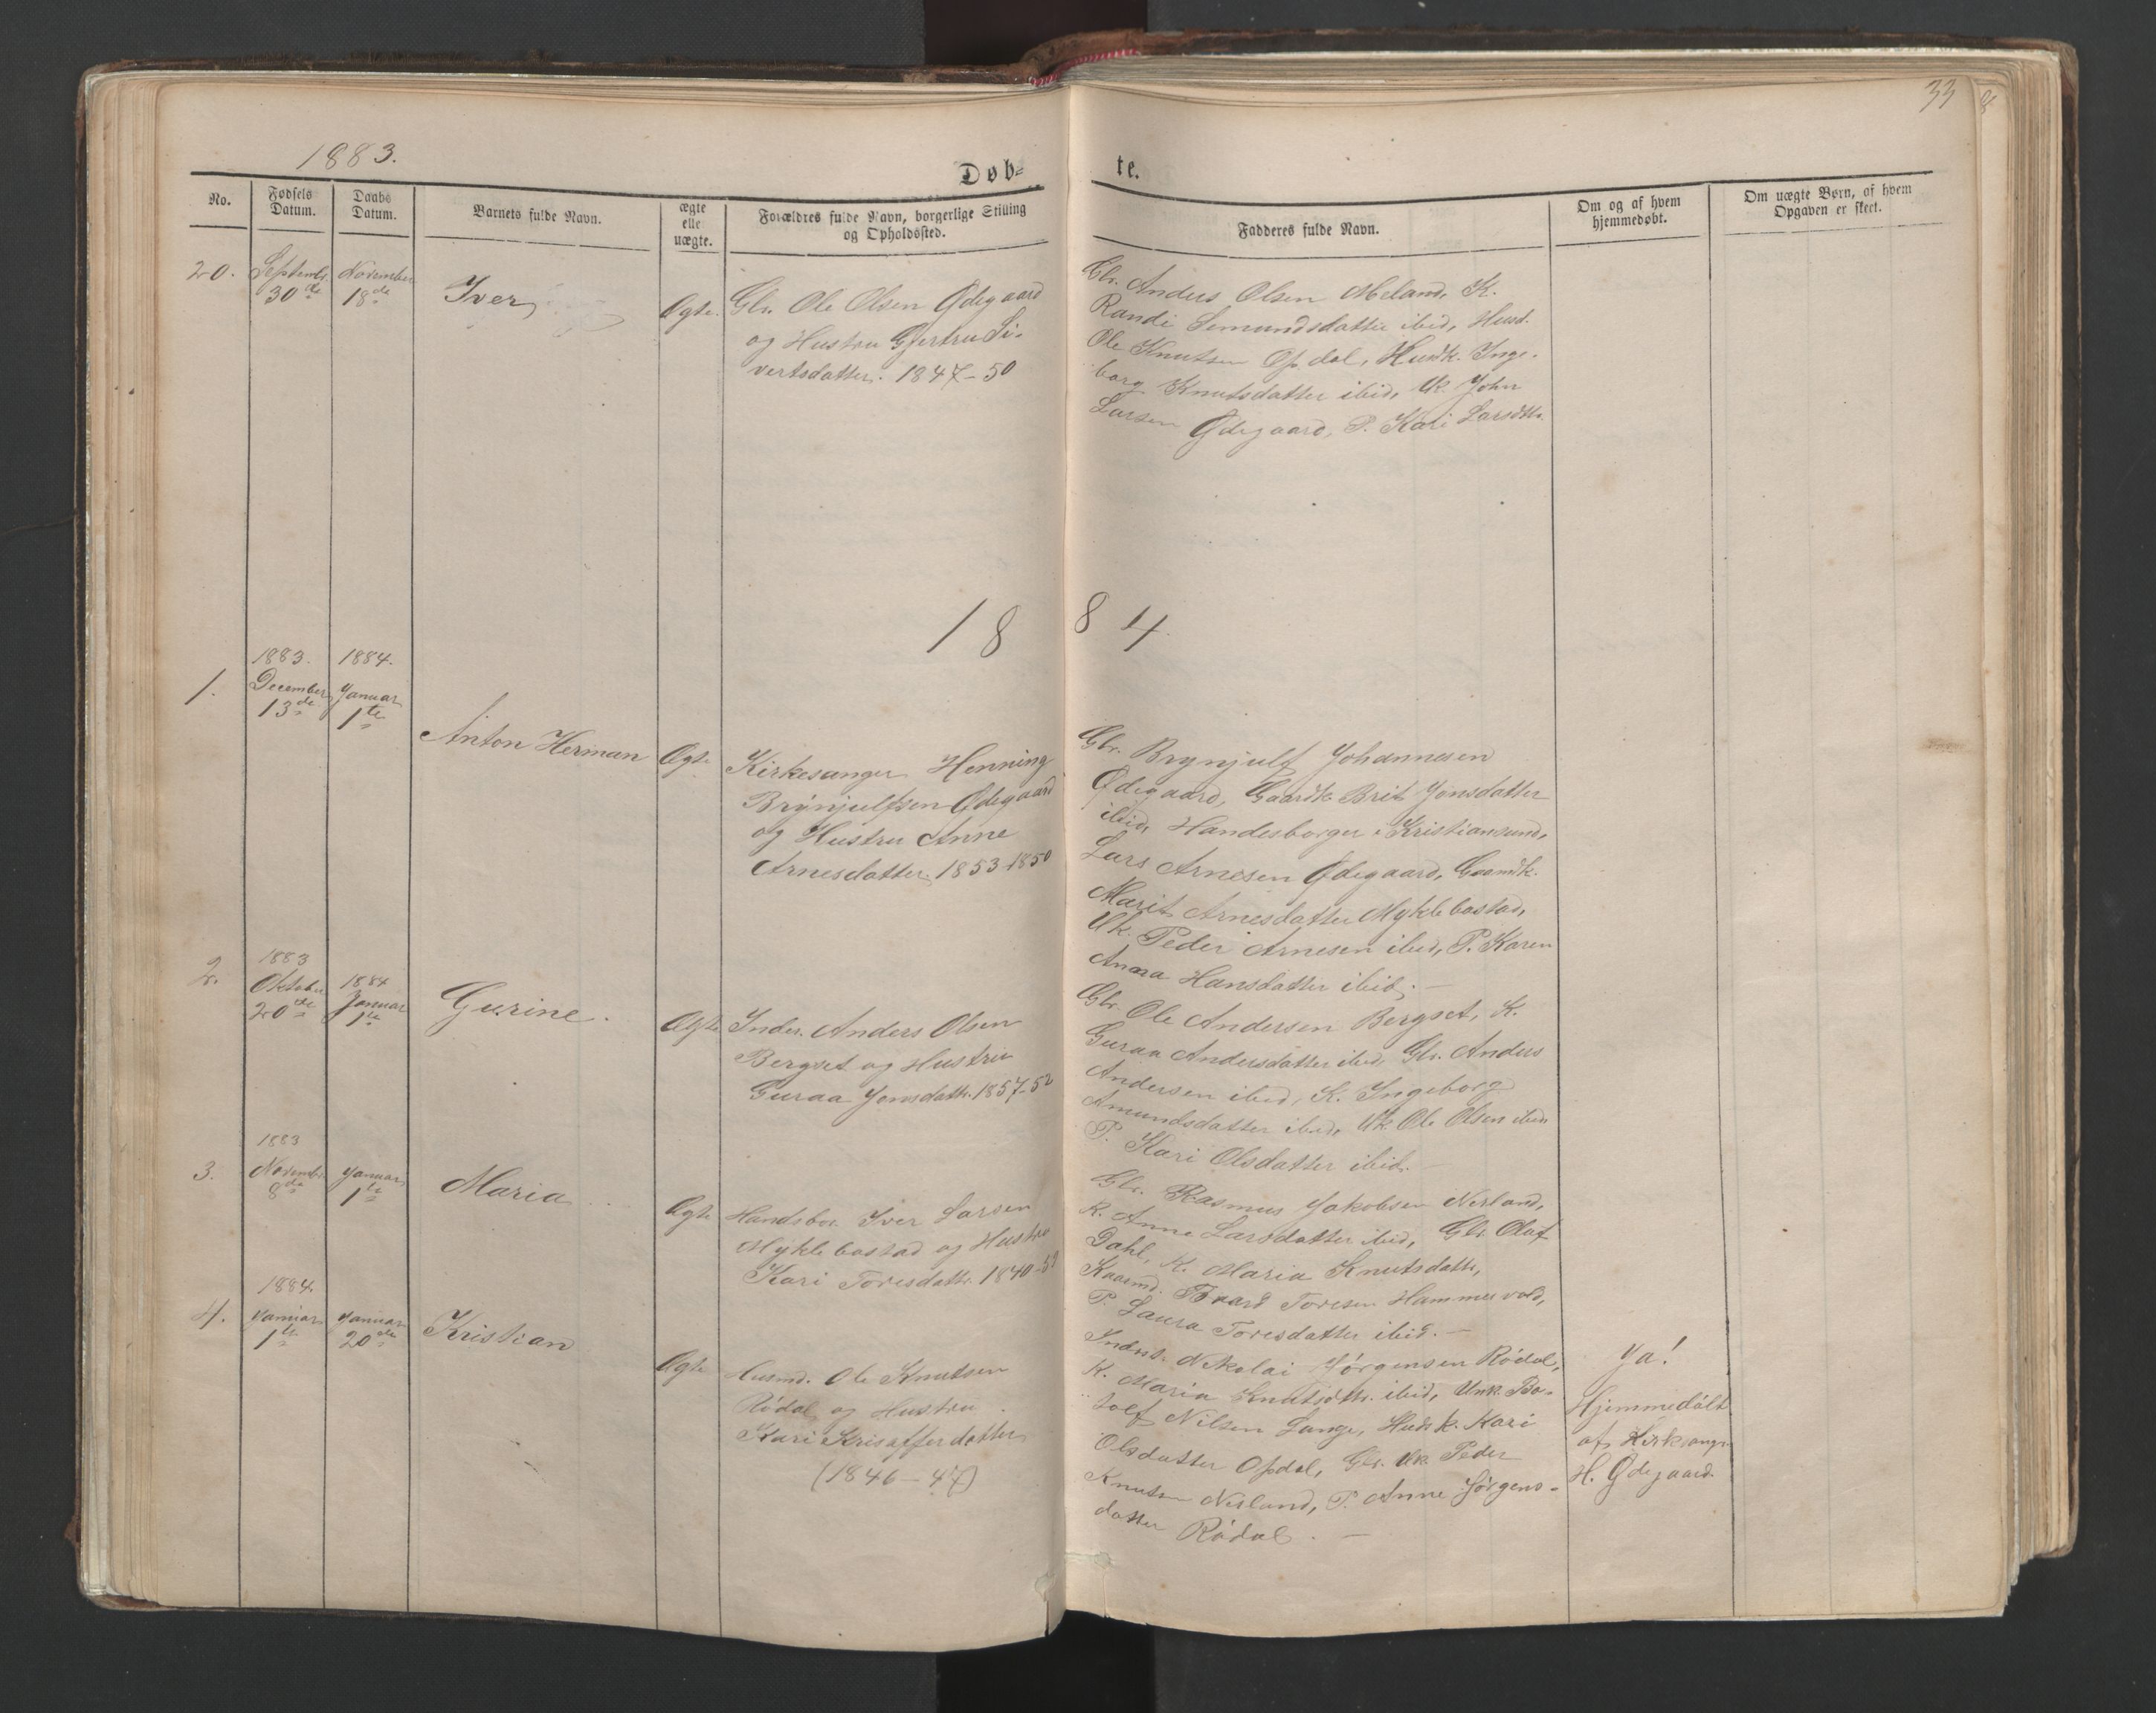 33
1883.
Døb-
te.
No.
Fødsels Datum.
Daabs Datum.
Barnets fulde Navn.
ægte elle uægte.
Forældres fulde Navn, borgerlige Stilling og Opholdssted.
Fadderes fulde Navn.
Om og af hvem hjemmedøbt.
Om uægte Børn, af hvem Opgaven er skeet.
20.
Septembr
30de
November
18de
Iver
Ægte.
Gbr. Ole Olsen Ødegaard
og Hustru Gjertru Si-
vertsdatter. 1847-50
Gbr. Anders Olsen Meland, K.
Randi Semundsdatter ibid, Husd.
Ole Knutsen Opdal, Husk. Inge-
borg Knutsdatter ibid, Uk. John
Larsen Ødegaard, P. Kari Larsdtr.
1884.
1.
1883.
December
13de
1884.
Januar
1te
Anton Herman
Ægte
Kirkesanger Henning
Brynjulfsen Ødegaard
og Hustru Anne
Arnesdatter. 1853-1850
Gbr. Brynjulf Johannesen
Ødegaard, Gaardk. Brit Jonsdatter
ibid, Handesborger i Kristiansund,
Lars Arnesen Ødegaard, Gaardk.
Marit Arnesdatter Myklebostad,
Uk. Peder Arnesen ibid, P. Karen
Anna Hansdatter ibid. —
2.
1883
Oktober
20de
1884
Januar
1te
Gurine.
Ægte
Inder. Anders Olsen
Bergset og Hustru
Guraa Jonsdattr. 1857-52
Gbr. Ole Andersen Bergset, K.
Guraa Andersdatter ibid, Gbr. Anders
Andersen ibid, K. Ingeborg
Amundsdatter ibid, Uk. Ole Olsen ibid
P. Kari Olsdatter ibid. —
3.
1883
Novembr
8de
Januar
1te
Maria
Ægte
Handsbor. Iver Larsen
Myklebostad og Hustru
Kari Toresdattr. 1840-53
Gbr. Rasmus Jakobsen Nerland,
K. Anne Larsdatter ibid, Gbr. Olaf
Dahl, K. Maria Knutsdattr,
Kaarmd. Baard Toresen Hammervold,
P. Laura Toresdatter ibid. —
4.
1884.
Januar
1te
Januar
20de
Kristian
Ægte
Husmd. Ole Knutsen
Rødal og Hustru
Kari Kristofferdatter
(1846-47)
Inders. Nikolai Jørgensen Rødal,
K. Maria Knutsdtr. ibid, Unk. Bo-
tolf Nilsen Lange, Husk. Kari
Olsdatter Opdal, Gbr. Uk. Peder
Knutsen Nerland, P. Anne Jørgens-
datter Rødal. —
Ja!
Hjemmedøbt
af Kirksangr
H. Ødegaard.